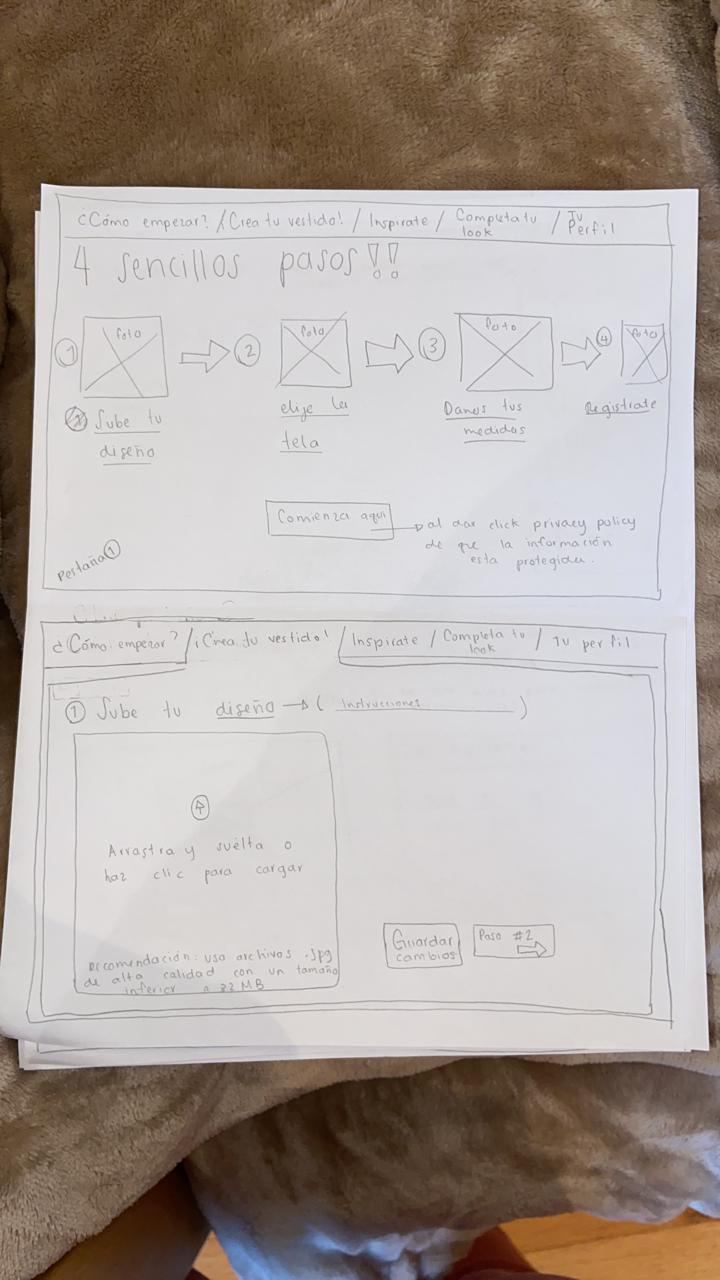 ¿Cómo empezar? / ¡Crea tu vestido! / Inspirate / Completa tu look / Tu Perfil
4 sencillos pasos!!
1 foto 2 foto 3 foto 4 foto
Sube tu
diseño
elije la
tela
Danos tus
medidas
Registrate
Comienza aquí
al dar click privacy policy
de que la información
esta protegida.
Pestaña 1
¿Cómo empezar? / ¡Crea tu vestido! / Inspirate / Completa tu look / Tu perfil
1 Sube tu diseño → ( Instrucciones )
Arrastra y suelta o
haz clic para cargar
Recomendación: usa archivos .Jpg
de alta calidad con un tamaño
inferior a 22 MB
Guardar
cambios
Paso #2